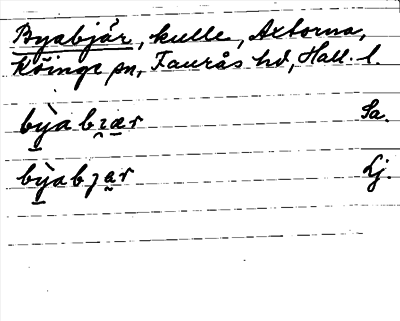 Byabjär, kulle, Axtorna,
Köinge sn, Faurås hd, Hall. l.
bỳabɿær Sa.
bỳabȷar Lj.